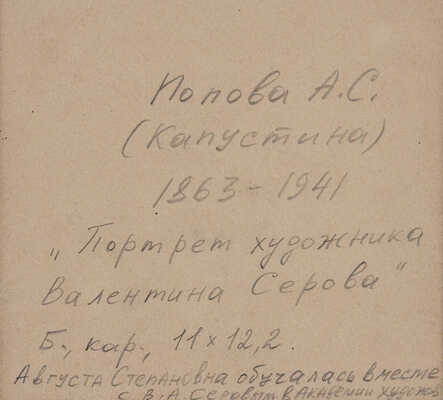 Попова А.С.
(Капустина)
1863-1941
„Портрет художника
Валентина Серова"
Б., кар., 11×12,2.
Августа Степановна обучалась вместе
с В.А. Серовым в Академии художов